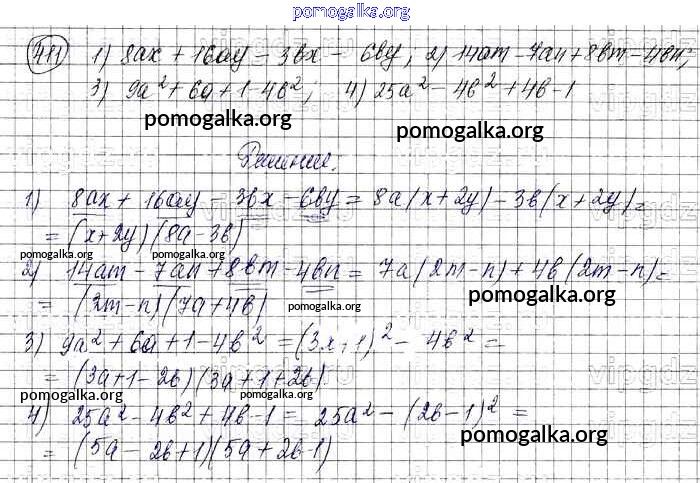 pomogalka.org
411 1) 8ax + 16ay - 3bx - 6by; 2) 14am - 7an + 8bm - 4bn;
3) 9a² + 6a + 1 - 4b²; 4) 25a² - 4b² + 4b - 1
pomogalka.org pomogalka.org
Решение.
1) 8ax + 16ay - 3bx - 6by = 8a(x+2y) - 3b(x+2y) =
= (x+2y)(8a-3b)
pomogalka.org pomogalka.org
2) 14am - 7an + 8bm - 4bn = 7a(2m-n) + 4b(2m-n) =
pomogalka.org
= (2m-n)(7a+4b)
pomogalka.org
3) 9a² + 6a + 1 - 4b² = (3x+1)² - 4b² =
= (3a+1-2b)(3a+1+2b)
vipgdz
pomogalka.org pomogalka.org
4) 25a² - 4b² + 4b - 1 = 25a² - (2b-1)² =
pomogalka.org
= (5a-2b+1)(5a+2b-1)